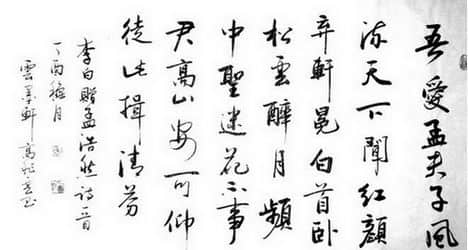 吾愛孟夫子風
流天下聞紅顏
弃軒冕白首卧
松雲醉月頻
中聖迷花不事
君高山安可仰
徒此揖清芬
李白贈孟浩然詩一首
丁酉 月
雲墨軒 高